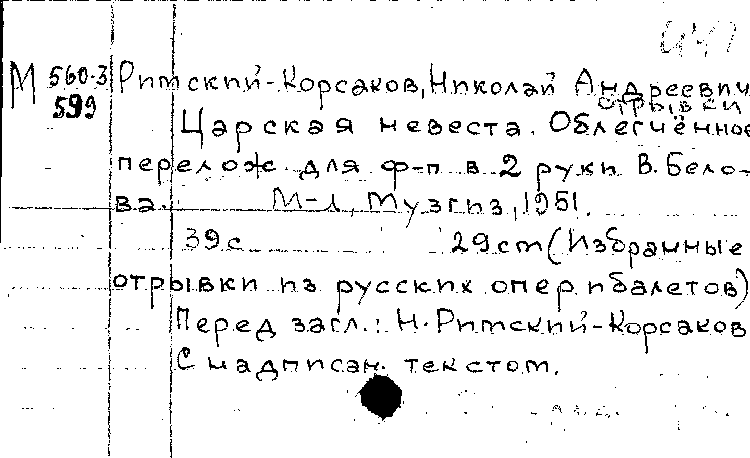 М 560-3 Римский-Корсаков, Николай Андреевич
599 отрывки
Царская невеста. Облегчённое
перелож. для ф-п в 2 руки В. Бело-
ва. М-Л, Музгиз, 1951.
39с 29cm (Избранные
отрывки из русских опер и балетов)
Перед загл.: Н. Римский-Корсаков
С надписан. текстом.